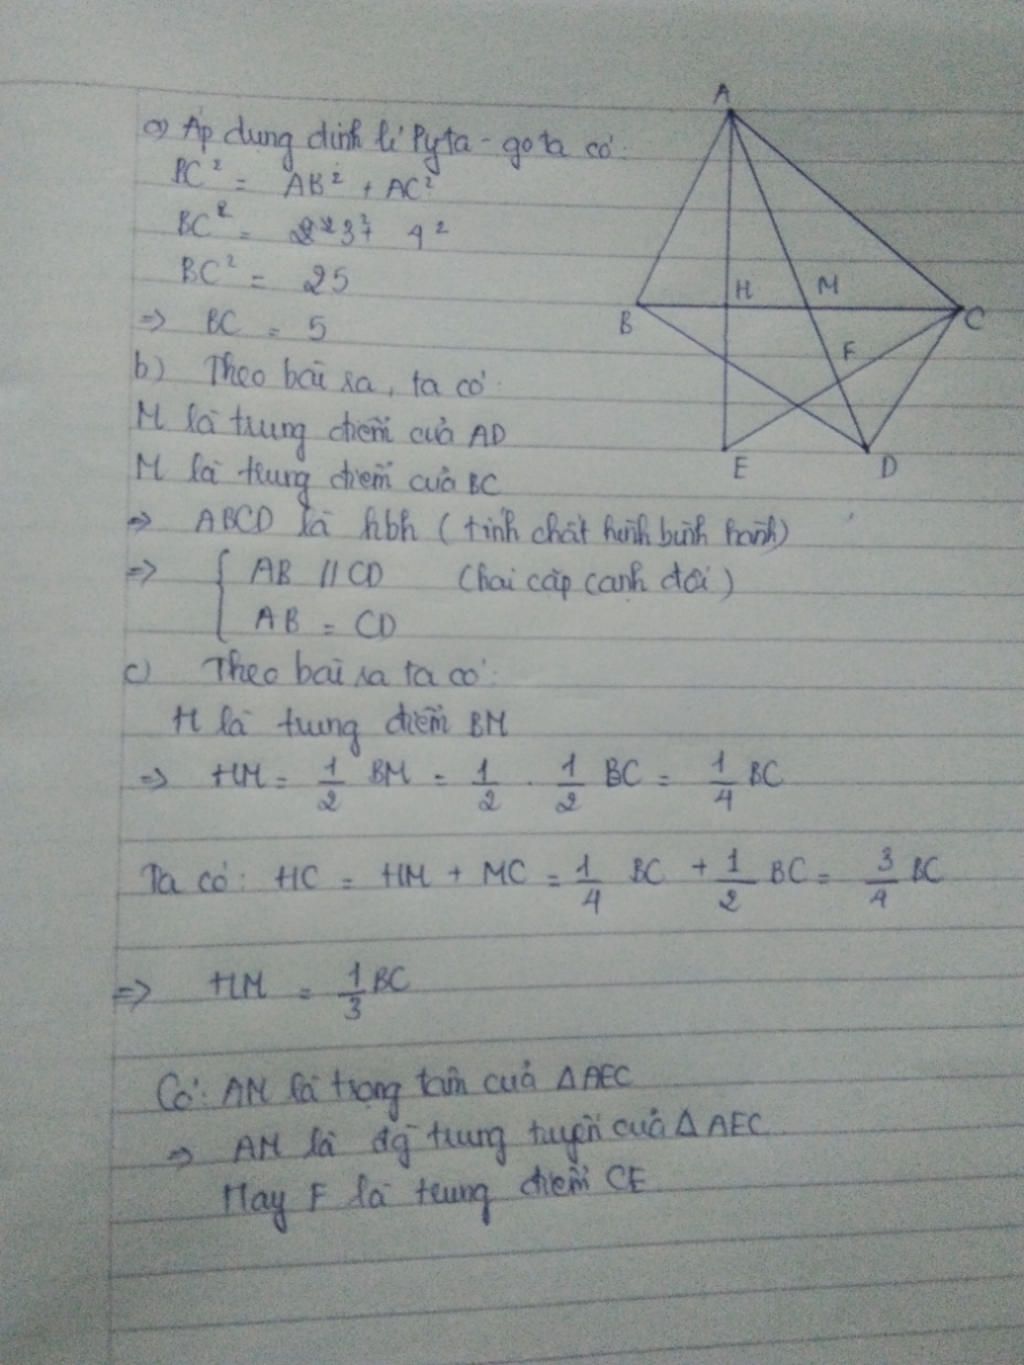 a) Áp dụng định lí Pyta - go ta có:
BC² = AB² + AC²
BC² = 3² + 4²
BC² = 25
=> BC = 5
b) Theo bài ra, ta có:
M là trung điểm của AD
M là trung điểm của BC
=> ABCD là hbh (tính chất hình bình hành)
=> { AB // CD (hai cặp cạnh đối)
AB = CD
c) Theo bài ra ta có:
H là trung điểm BM
=> HM = 1/2 BM = 1/2 . 1/2 BC = 1/4 BC
Ta có: HC = HM + MC = 1/4 BC + 1/2 BC = 3/4 BC
=> HM = 1/3 BC
Có: AM là trọng tâm của ΔAEC
=> AM là đg trung tuyến của ΔAEC
Hay F là trung điểm CE
A
H
M
B
C
F
E
D